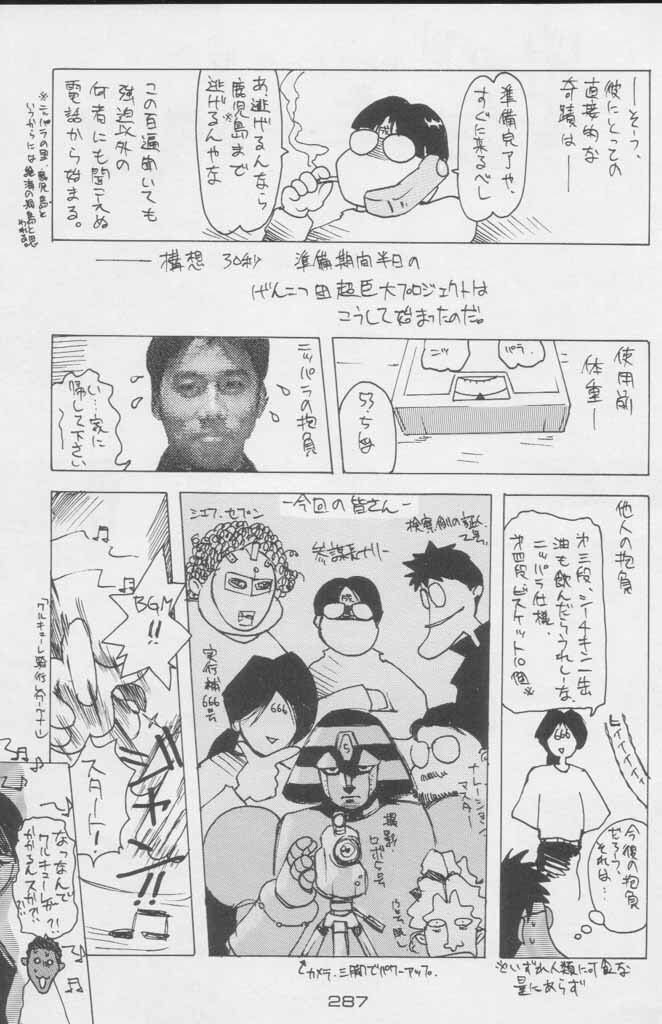 ―そう、
彼にとっての
直接的な
奇蹟は―
準備完了や、
すぐに来るべし
あ、逃げるんなら
鹿児島まで
逃げるんやな
この百遍聞いても
強迫以外の
何者にも聞こえぬ
電話から始まる。
※ニッパラの里、鹿児島と
いうからには絶海の孤島と思
われる。
――構想 30秒 準備期間半日の
げんこつ団超巨大プロジェクトは
こうして始まったのだ。
使用前
体重―
パラ.
ニッ
ニッパラの抱負
い…家に
帰して下さい
他人の抱負
オ三段、シーチキン一缶
油も飲んだらうれしーな、
ニッパラ仕様、
オ四段、ビスケット10個※
666
今後の抱負
だろう、
それは…
※いずれ人類に可食な
量にあらず
―今回の皆さん―
シェフ.セブン
参謀長ナリー
実行補
666号
666
ナレーション
マスター
撮影.
ロボ
カメラ.三脚でパワーアップ.
BGM
!!
スタート!
なっなんで
ワルキューレが
かかるんスか?!
287